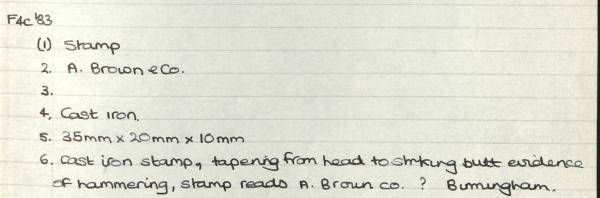 F4c '83
(1) Stamp
2. A. Brown & Co.
3.
4. Cast iron.
5. 35mm x 20mm x 10mm
6. Cast iron stamp, tapering from head to striking butt evidence
of hammering, stamp reads A. Brown co. ? Birmingham.